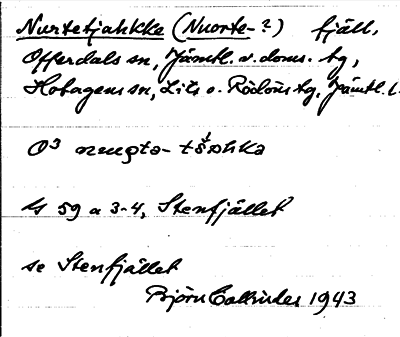 Nurtetjahkke (Nuorte-?) fjäll,
Offerdals sn, Jämtl. v. doms. tg,
Hotagens sn, Lits o. Rödöns tg, Jämtl. l.
O³
Is 59 a 3-4, Stenfjället
se Stenfjället
Björn Collinder 1943